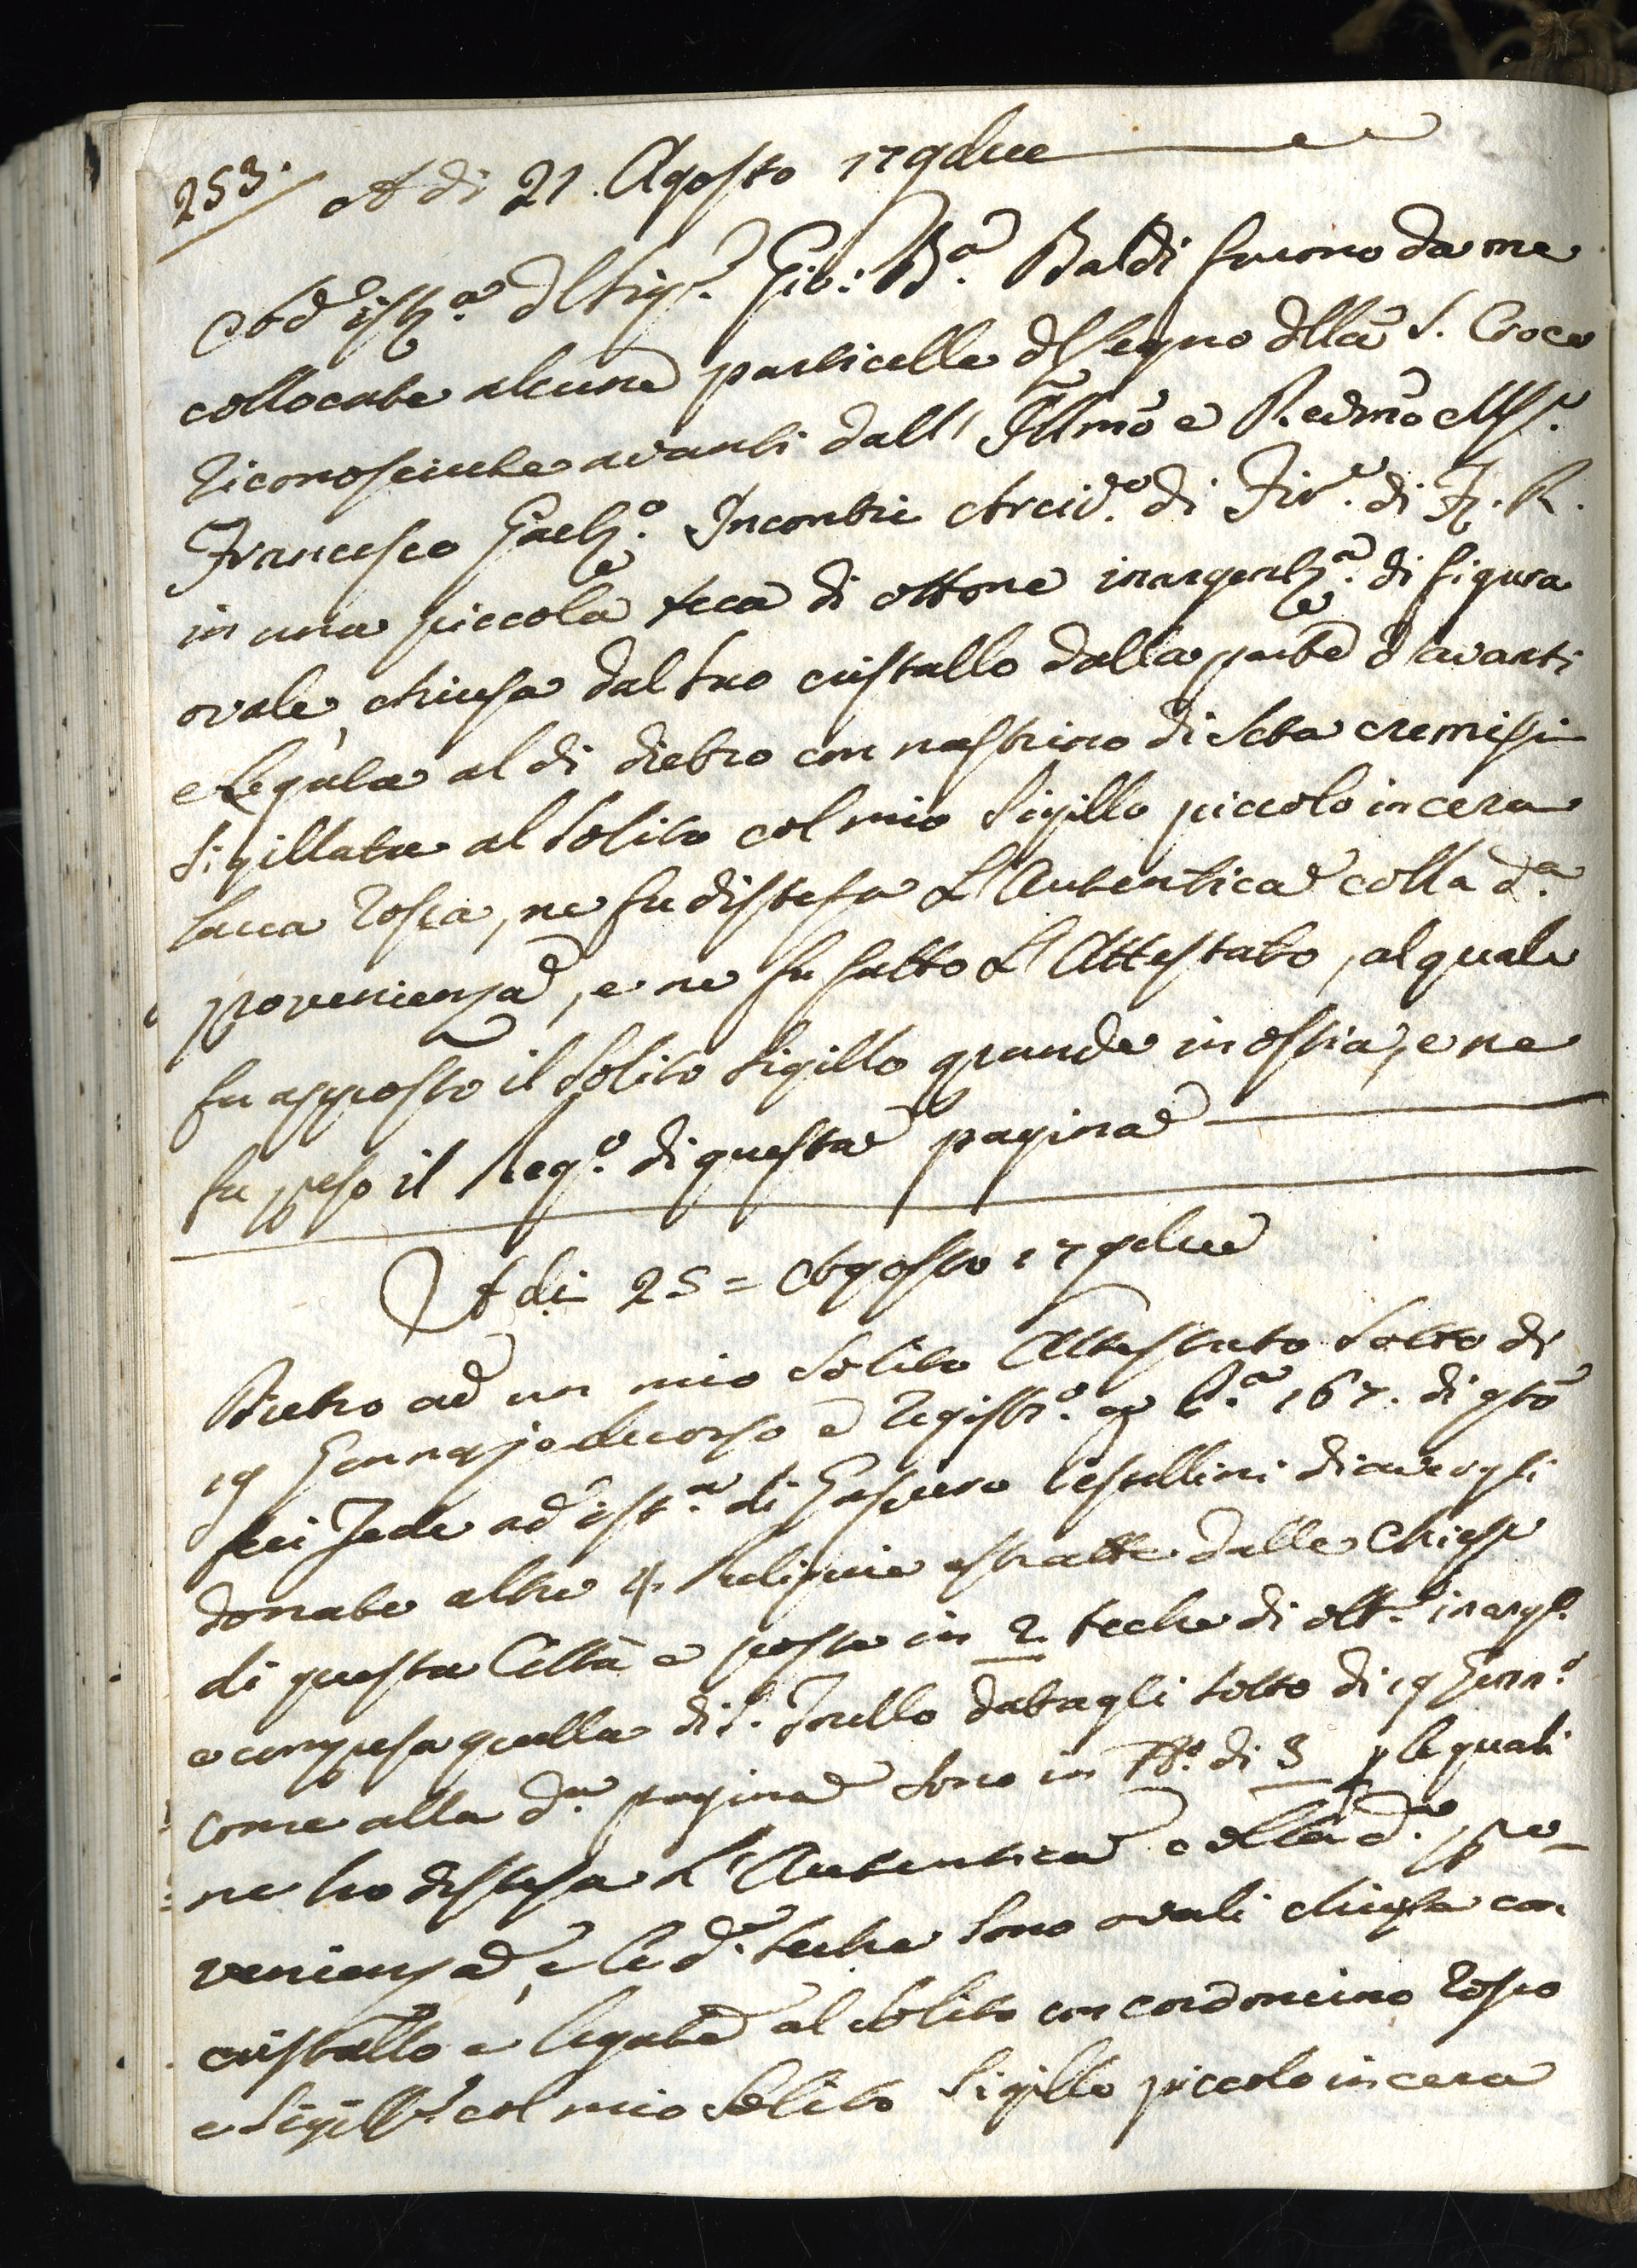 253. A di 21. Agosto 179due
Ad istz.a dl Sigr. Gio: B.a Baldi furono da me
collocate alcune particelle dl Legno dlla S. Croce
riconosciute avanti dall' Illmo e Revdmo Msr.
Francesco Gaet.o Incontri Arcid.o di Fir.e di F. R.
in una piccola teca di ottone inargent.a di figura
ovale, chiusa dal suo cristallo dalla parte d'avanti
e legata al di dietro con nastrino di seta cremisi
sigillata al solito col mio sigillo piccolo in cera
lacca rossa, ne fu distesa L'Autentica colla d.a
provenienza, e ne fu fatto L'Attestato, al quale
fu apposto il solito sigillo grande in ostia, e ne
fu preso il Reg.o di questa pagina
A di 25 = Agosto 179due
Dietro ad un mio solito Attestato sotto di
19 Gennajo decorso e registr.o a C.a 167. di qto
feci Fede ad ist.a di Gaspero Cestellini di avergli
donate altre 4. Reliquie estratte dalle Chiese
di questa Città e poste in 2. teche di ott.e inarg.e
e compresa quella di S. Irello datagli sotto di 19 Genn.o
come alla d.a pagina sono in N.o di 3 p le quali
ne ho distesa L'Autentica colla d.a pro-
venienza, e le d.e teche sono ovali chiuse con
cristallo e legate al solito con cordoncino rosso
e sigill.e col mio solito sigillo piccolo in cera